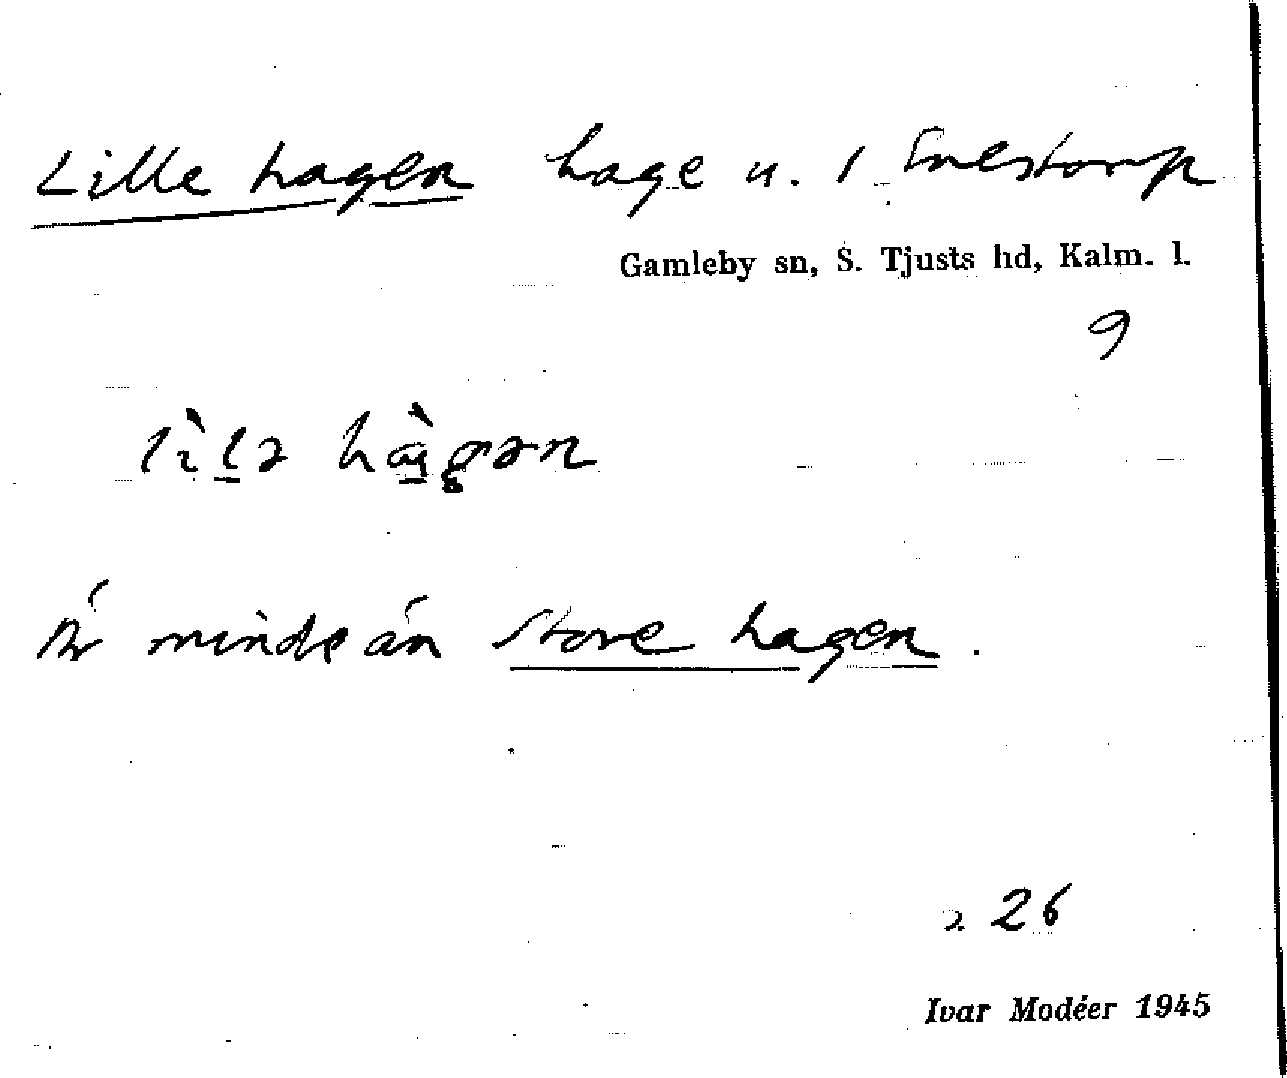 Lille hagen hage u. 1 Enestorp
Gamleby sn, S. Tjusts hd, Kalm. l.
9
lìlə hàgən
Är mindre än Store hagen.
2. 26
Ivar Modéer 1945